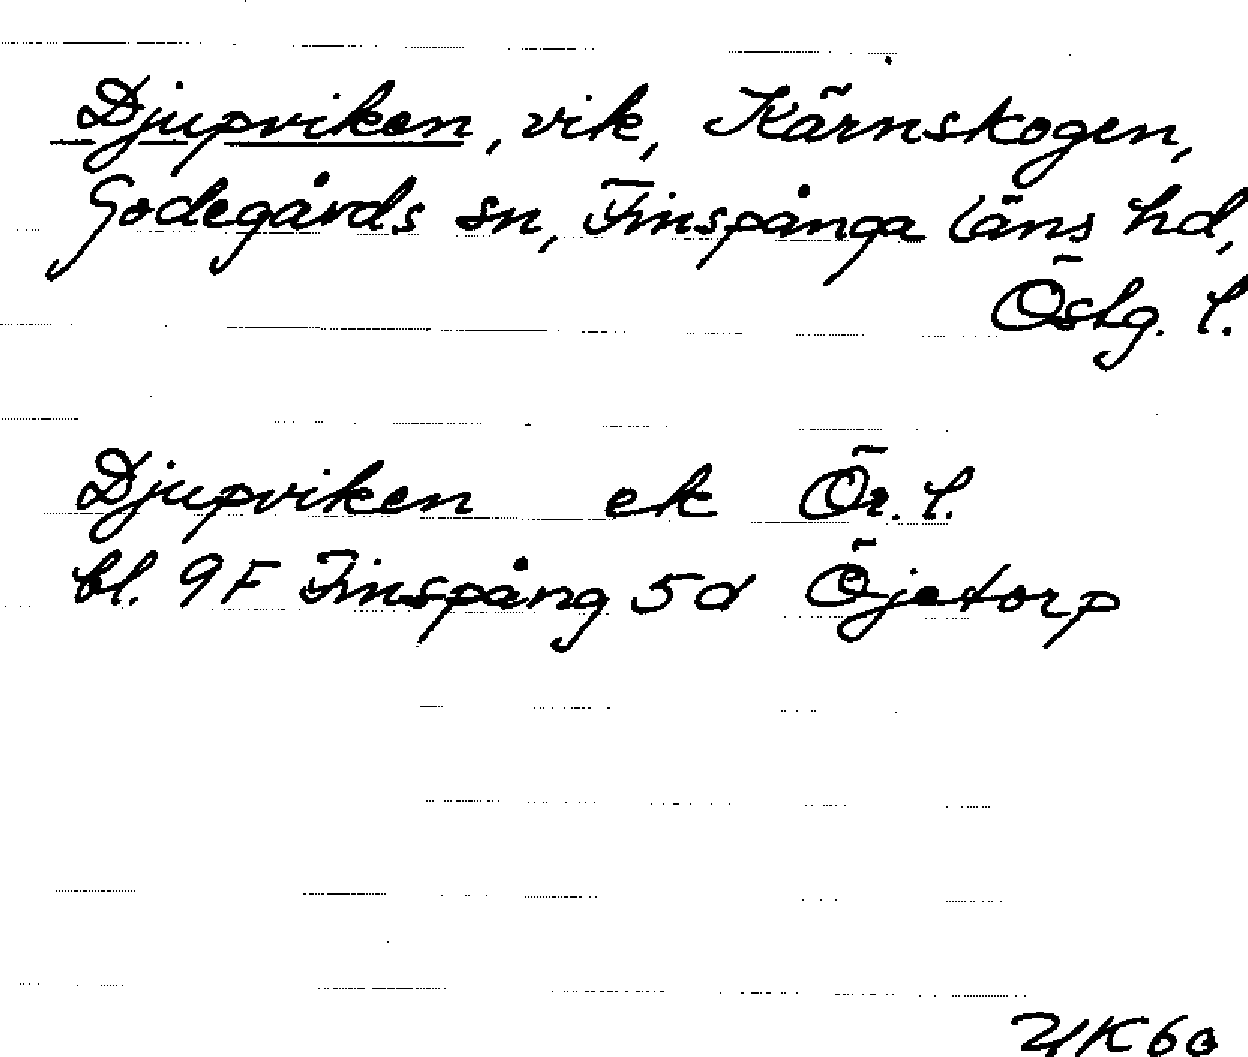 Djupviken, vik, Kärnskogen,
Godegårds sn, Finspånga läns hd,
Östg. l.
Djupviken ek Ör. l.
bl. 9F Finspång 5d Öjetorp